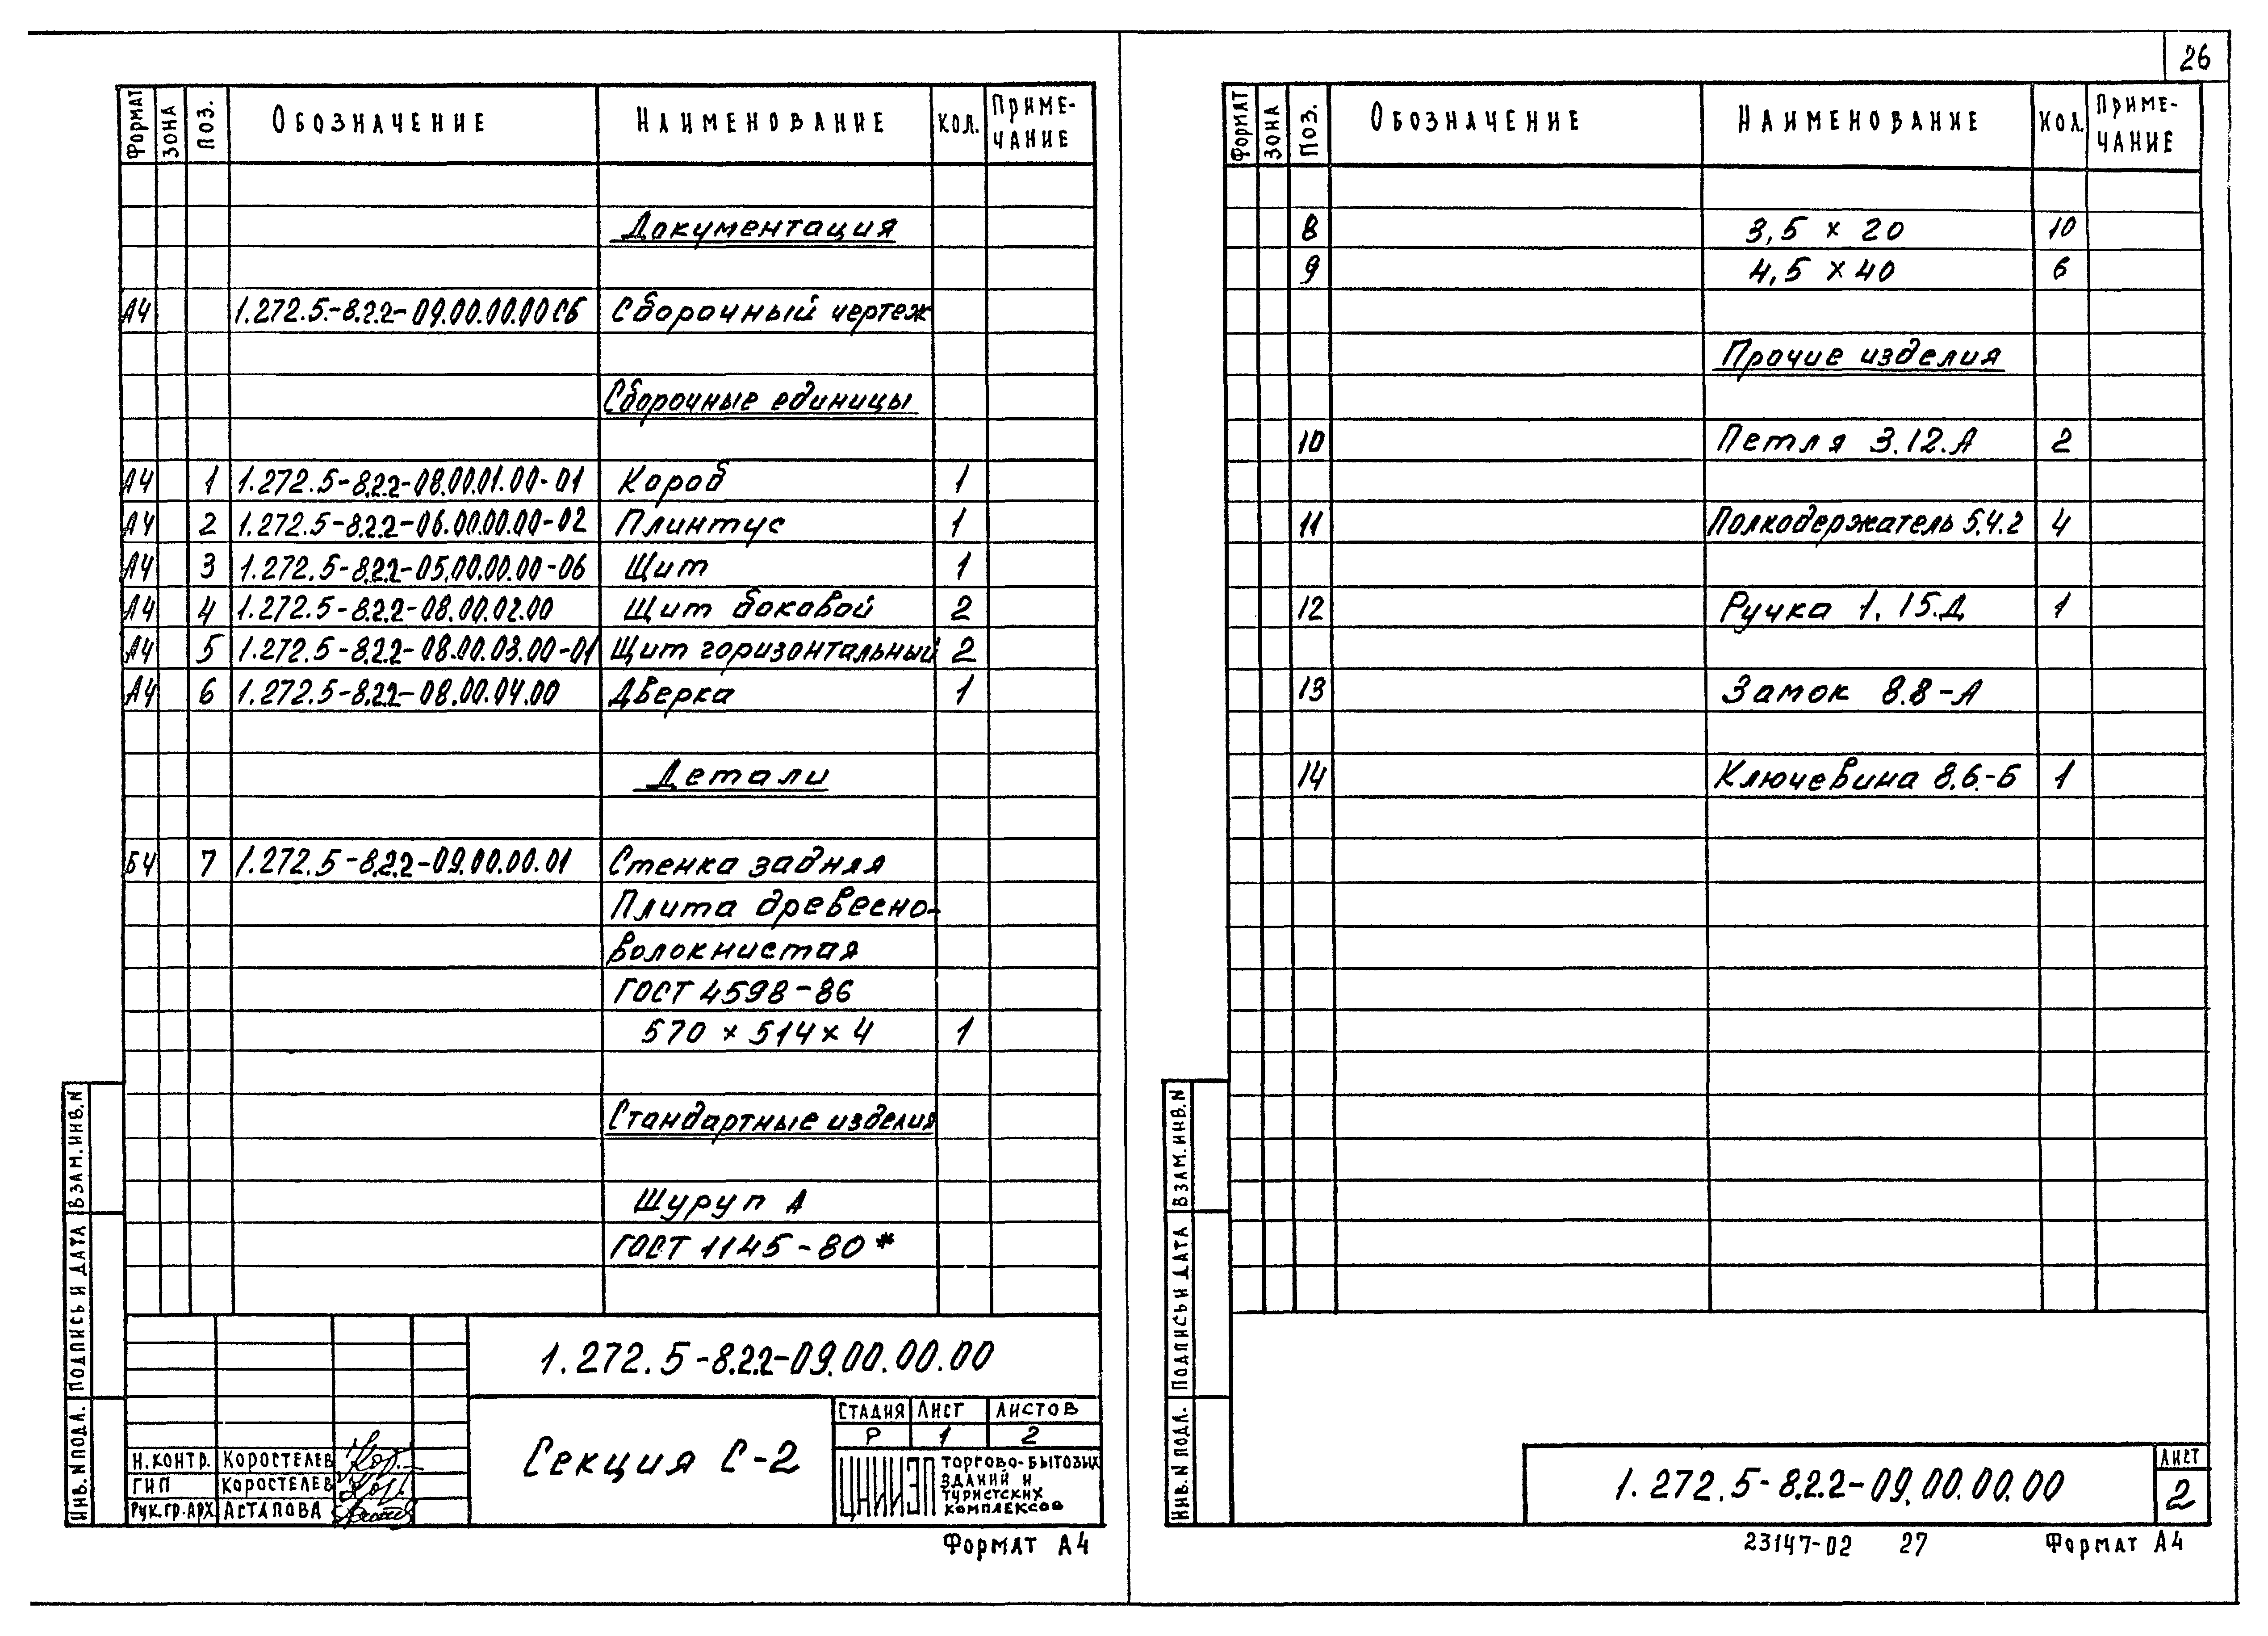 26
ФОРМАТ ЗОНА ПОЗ. ОБОЗНАЧЕНИЕ НАИМЕНОВАНИЕ КОЛ. ПРИМЕ-
ЧАНИЕ
Документация
А4 1.272.5-8.2.2-09.00.00.00СБ Сборочный чертеж
Сборочные единицы
А4 1 1.272.5-8.2.2-08.00.01.00-01 Короб 1
А4 2 1.272.5-8.2.2-06.00.00.00-02 Плинтус 1
А4 3 1.272.5-8.2.2-05.00.00.00-06 Щит 1
А4 4 1.272.5-8.2.2-08.00.02.00 Щит боковой 2
А4 5 1.272.5-8.2.2-08.00.03.00-01 Щит горизонтальный 2
А4 6 1.272.5-8.2.2-08.00.04.00 Дверка 1
Детали
Б4 7 1.272.5-8.2.2-09.00.00.01 Стенка задняя
Плита древесно-
волокнистая
ГОСТ 4598-86
570 × 514 × 4 1
Стандартные изделия
Шуруп А
ГОСТ 1145-80*
ВЗАМ.ИНВ.N
ПОДПИСЬ И ДАТА
ИНВ.N ПОДЛ.
1.272.5-8.2.2-09.00.00.00
Секция С-2
СТАДИЯ ЛИСТ ЛИСТОВ
Р 1 2
Н.КОНТР. КОРОСТЕЛЕВ
ГИП КОРОСТЕЛЕВ
РУК.ГР.АРХ АСТАПОВА
ЦНИИЭП ТОРГОВО-БЫТОВЫХ
ЗДАНИЙ И
ТУРИСТСКИХ
КОМПЛЕКСОВ
ФОРМАТ А4
ФОРМАТ ЗОНА ПОЗ. ОБОЗНАЧЕНИЕ НАИМЕНОВАНИЕ КОЛ. ПРИМЕ-
ЧАНИЕ
8 3,5 × 20 10
9 4,5 × 40 6
Прочие изделия
10 Петля 3.12.А 2
11 Полкодержатель 5.4.2 4
12 Ручка 1.15.Д 1
13 Замок 8.8-А
14 Ключевина 8.6.-Б 1
ВЗАМ.ИНВ.N
ПОДПИСЬ И ДАТА
ИНВ.N ПОДЛ.
1.272.5-8.2.2-09.00.00.00
ЛИСТ
2
23147-02 27 ФОРМАТ А4